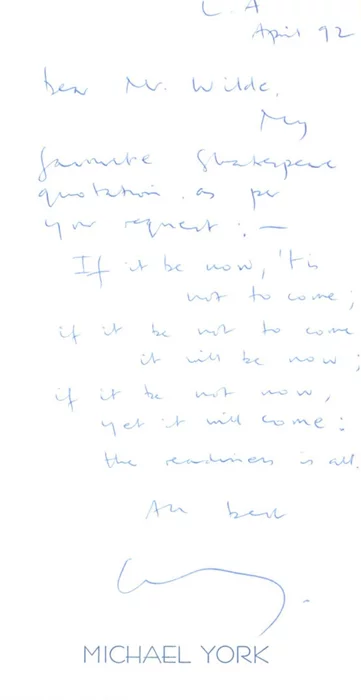 L.A
April 92
Dear Mr. Wilde,
My
favourite Shakespeare
quotation, as per
your request: —
If it be now, 'tis
not to come;
if it be not to come
it will be now;
if it be not now,
yet it will come:
the readiness is all.
All best
MICHAEL YORK